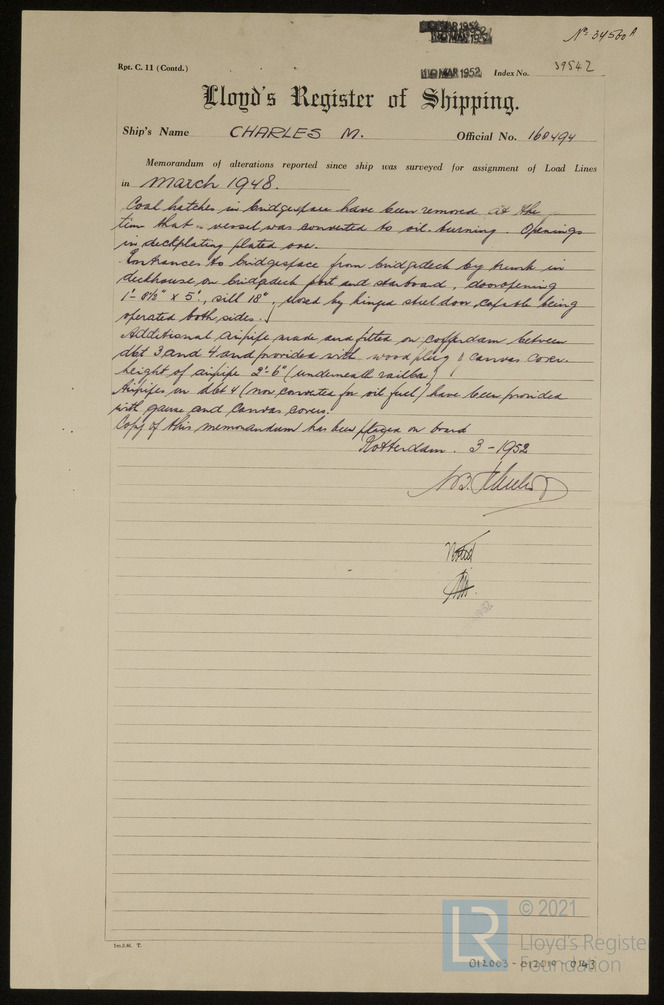 Nº 34560 A
Rpt. C. 11 (Contd.)
MAR 1952 Index No. 39542
Lloyd's Register of Shipping.
Ship's Name CHARLES M. Official No. 160494
Memorandum of alterations reported since ship was surveyed for assignment of Load Lines
in March 1948.
Coal hatches in bridgespace have been removed at the
time that vessel was converted to oil burning. Openings
in deckplating plated over.
Entrances to bridgespace from bridgedeck by trunk in
deckhouse on bridgedeck port and starboard, dooropening
1'-8½" x 5', sill 18", closed by hinged steel door, capable being
operated both sides.
Additional airpipe made and fitted on cofferdam between
dbt 3 and 4 and provided with wood plug & canvas cover.
height of airpipe 2'-6" (underneath railbar)
Airpipes in dbt 4 (now converted for oil fuel) have been provided
with gauze and canvas covers.
Copy of this memorandum has been placed on board
Rotterdam. 3-1952
Noted
1952
© 2021
LR
Lloyd's Register
Foundation
012003-012019-0143